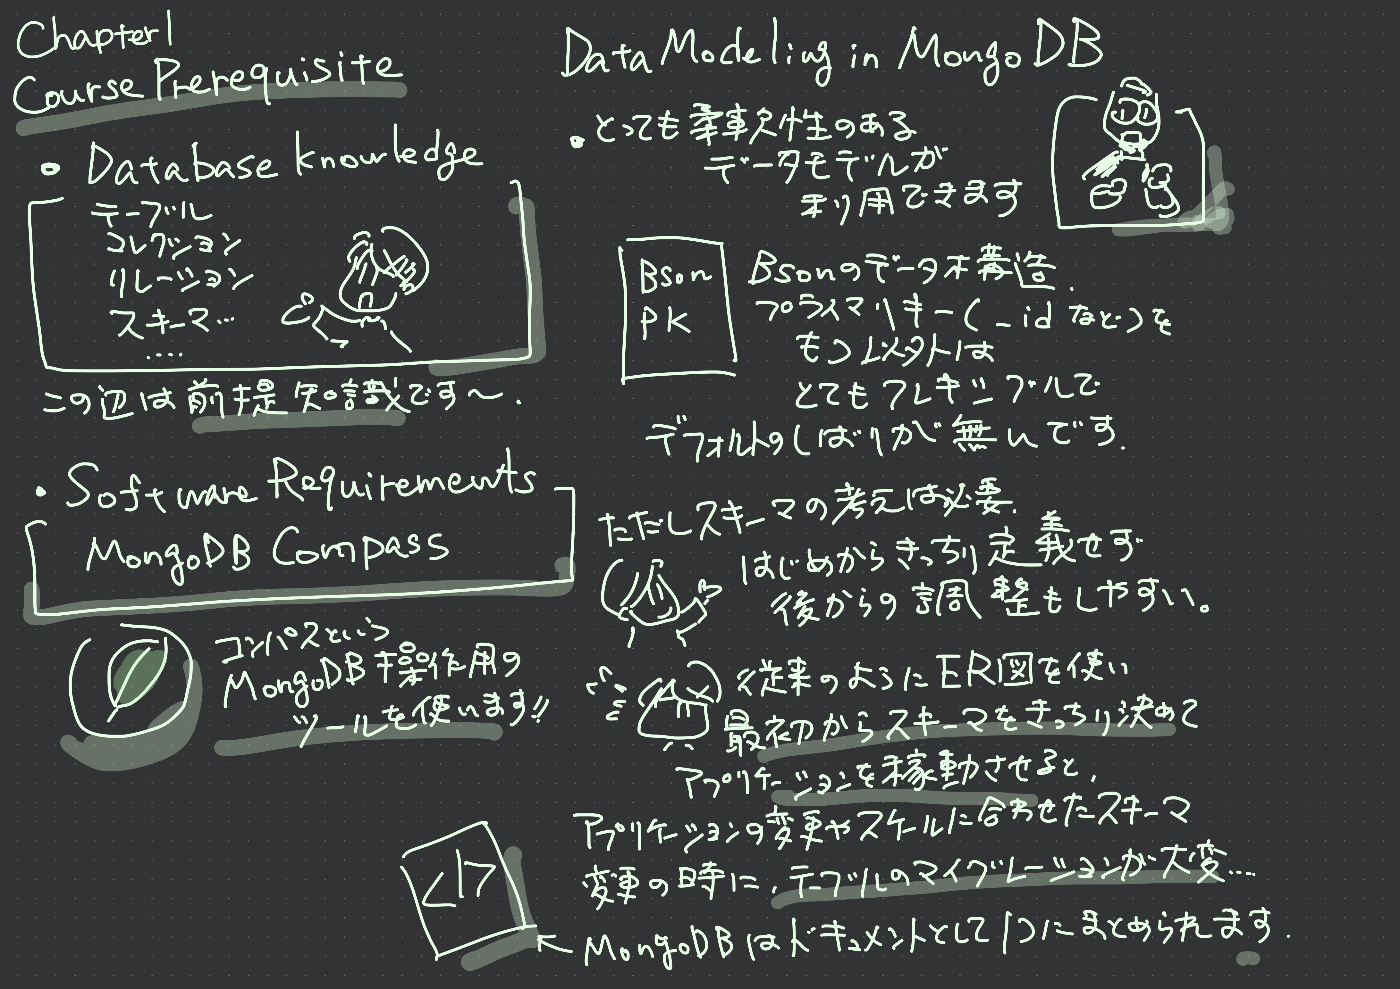 Chapter1
Course Prerequisite
• Database knowledge
テーブル
コレクション
リレーション
スキーマ...
....
この辺は前提知識です〜.
• Software Requirements
MongoDB Compass
コンパスという
MongoDB操作用の
ツールを使います!!
Data Modeling in MongoDB
• とっても柔軟性のある
データモデルが
利用できます
Bson
PK
Bsonのデータ構造.
プライマリキー(_idなど)を
もつ以外は
とてもフレキシブルで
デフォルトのしばりが無いです.
ただしスキーマの考えは必要.
はじめからきっちり定義せず
後からの調整もしやすい。
従来のようにER図を使い
最初からスキーマをきっちり決めて
アプリケーションを稼動させると,
アプリケーションの変更やスケールに合わせたスキーマ
変更の時に,テーブルのマイグレーションが大変...
</>
← MongoDBはドキュメントとして1つにまとめられます.